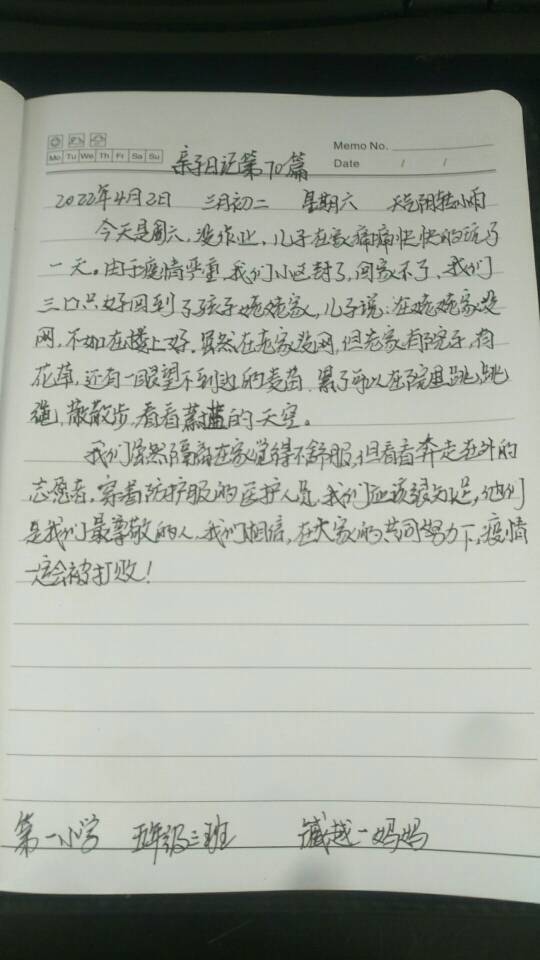 Memo No.
Mo Tu We Th Fr Sa Su
Date / /
亲子日记第70篇
2022年4月2日 三月初二 星期六 天气阴转小雨
今天是周六,没作业,儿子在家痛痛快快的玩了
一天。由于疫情严重,我们小区封了,回家不了,我们
三口只好回到了孩子姥姥家,儿子说:在姥姥家没
网,不如在楼上好。虽然在老家没网,但老家有院子,有
花草,还有一眼望不到边的麦苗,累了可以在院里跳跳
绳,散散步,看看蔚蓝的天空。
我们虽然隔离在家觉得不舒服,但看看奔走在外的
志愿者,穿着防护服的医护人员,我们应该很知足,他们
是我们最尊敬的人,我们相信,在大家的共同努力下,疫情
一定会被打败!
第一小学 五年级三班 臧越一妈妈